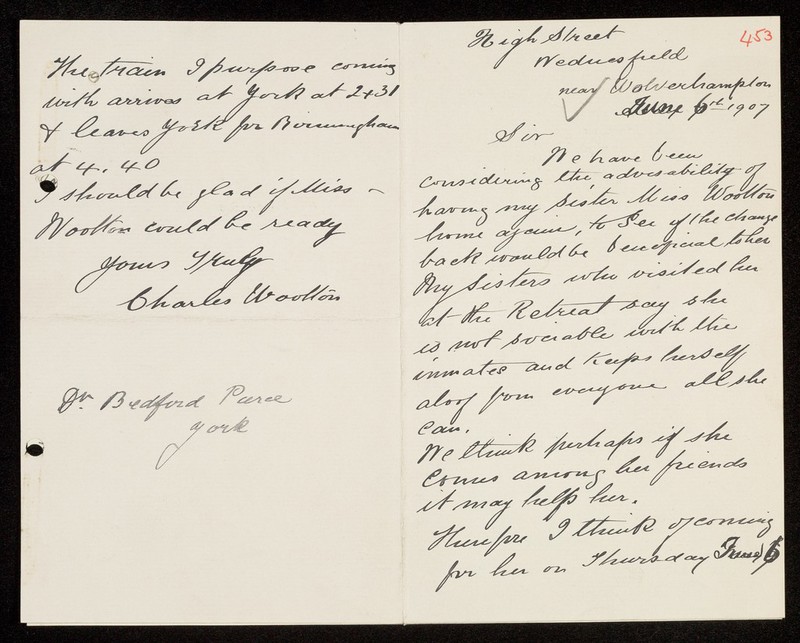 453
High Street
Wednesfield
near Wolverhampton
June 6th 1907
Sir
We have been
considering the adviseability of
having my Sister Miss Wootton
home again, to See if the change
back would be beneficial to her
My Sisters who visited her
at the Retreat say she
is not sociable with the
inmates and keeps herself
aloof from everyone all she
can.
We think perhaps if she
comes among her friends
it may help her.
Therefore I think of coming
for her on Thursday June 6
The train I purpose coming
with arrives at York at 2.31
& leaves York for Birmingham
at 4.40
I should be glad if Miss
Wootton could be ready
Yours Truly
Charles Wootton
Dr Bedford Pierce
York